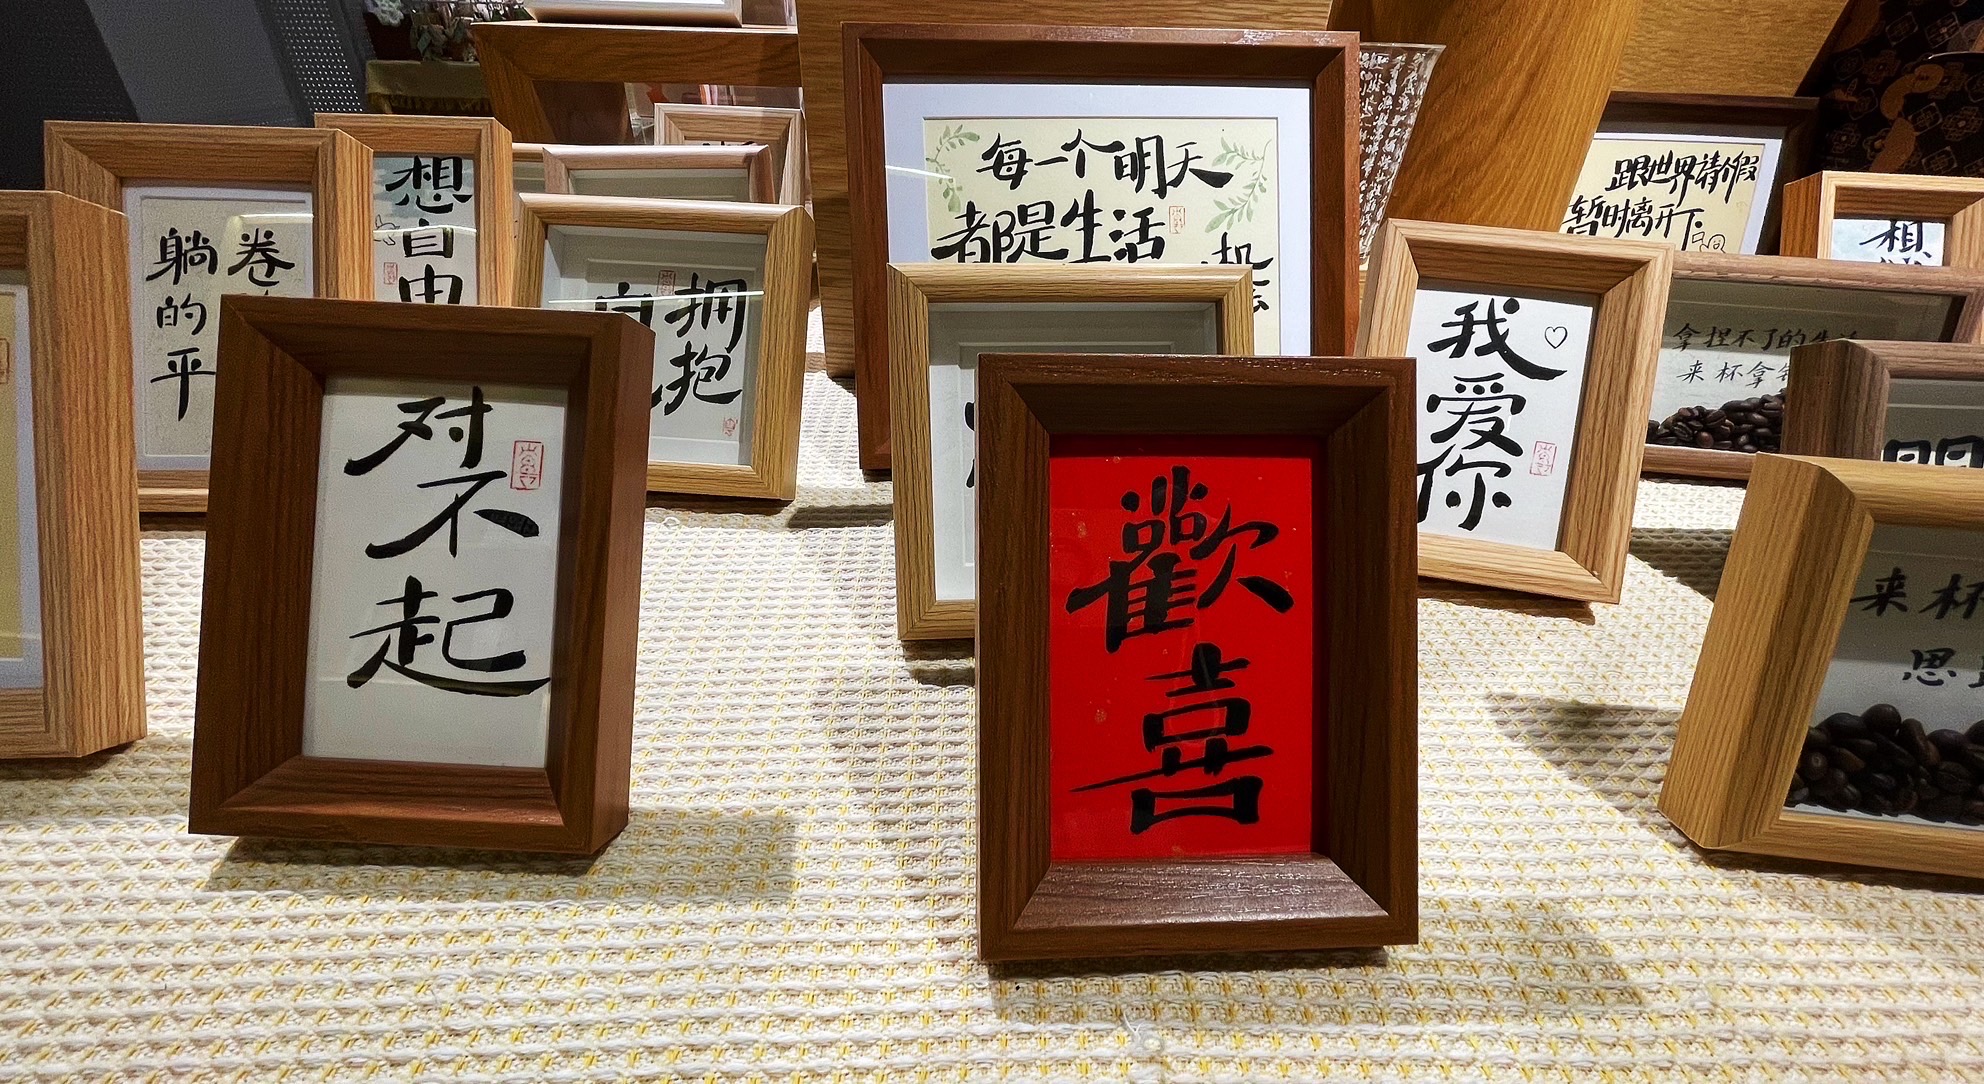 卷
躺
的
平
想
自
由
拥抱
每一个明天
都是生活
机
跟世界请个假
暂时离开下
想
我
爱
你
拿捏不了的生活
来杯拿
对
不
起
歡
喜
来杯
思